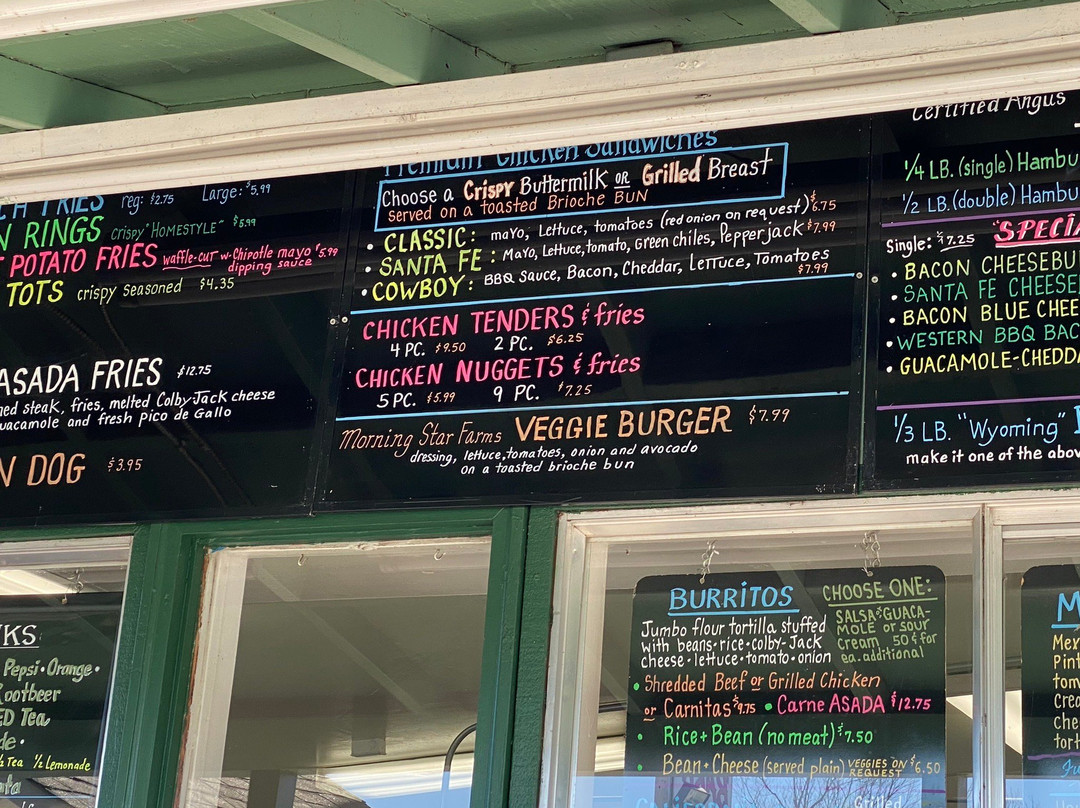 reg: $2.75 Large: $5.99
RINGS crispy "HOMESTYLE" $5.99
POTATO FRIES waffle-cut w-Chipotle mayo $5.99
dipping sauce
TOTS crispy seasoned $4.35
ASADA FRIES $12.75
steak, fries, melted Colby-Jack cheese
and fresh pico de Gallo
DOG $3.95
Premium Chicken Sandwiches
Choose a Crispy Buttermilk OR Grilled Breast
served on a toasted Brioche BUN
• CLASSIC: mayo, Lettuce, tomatoes (red onion on request) $6.75
• SANTA FE: Mayo, Lettuce, tomato, Green chiles, Pepperjack $7.99
• COWBOY: BBQ Sauce, Bacon, Cheddar, Lettuce, Tomatoes
$7.99
CHICKEN TENDERS & fries
4 PC. $9.50 2 PC. $6.25
CHICKEN NUGGETS & fries
5 PC. $5.99 9 PC. $7.25
Morning Star Farms VEGGIE BURGER $7.99
dressing, lettuce, tomatoes, onion and avocado
on a toasted brioche bun
Certified Angus
1/4 LB. (single) Hambu
1/2 LB. (double) Hambu
Single: $7.25 "SPECIA
• BACON CHEESEBU
• SANTA FE CHEESE
• BACON BLUE CHEE
• WESTERN BBQ BAC
• GUACAMOLE-CHEDDA
1/3 LB. "Wyoming"
make it one of the abov
KS
Pepsi • Orange •
Rootbeer
ED Tea
de •
Tea ½ Lemonade
BURRITOS
Jumbo flour tortilla stuffed
with beans • rice • colby-Jack
cheese • lettuce • tomato • onion
CHOOSE ONE:
SALSA & GUACA-
MOLE or SOUR
Cream .50¢ for
ea. additional
• Shredded Beef or Grilled Chicken
or Carnitas $9.75 • Carne ASADA $12.75
• Rice + Bean (no meat) $7.50
• Bean + Cheese (served plain) VEGGIES ON REQUEST $6.50
Grilled
M
Mex
Pint
tom
Crea
che
tort